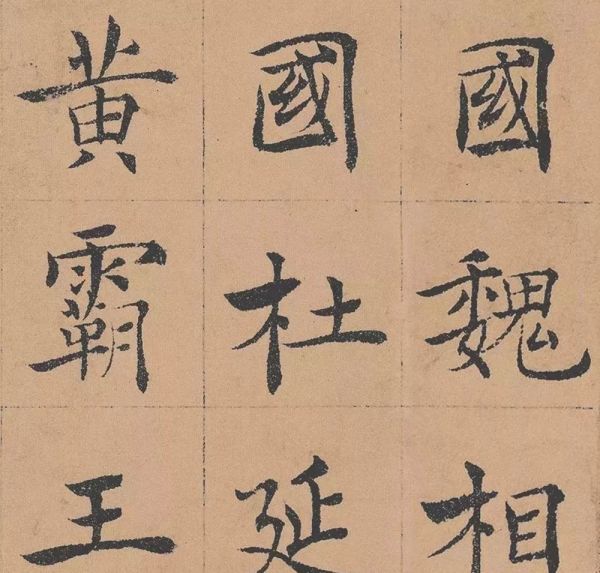 國魏相
國杜延
黃霸王